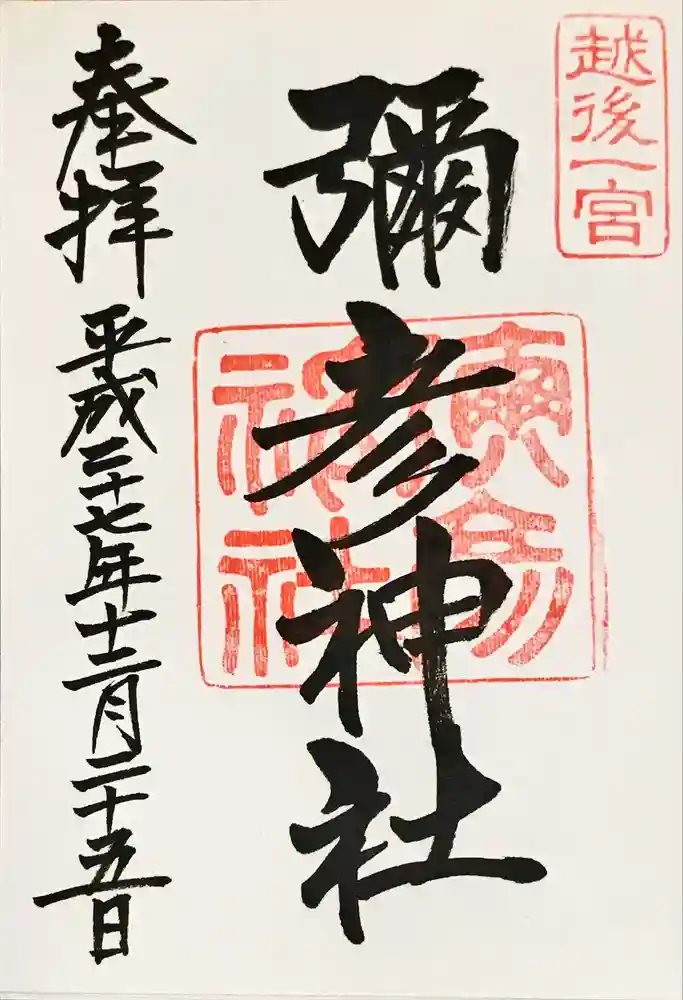 越後一宮
彌彦神社
奉拝 平成二十七年十二月二十五日